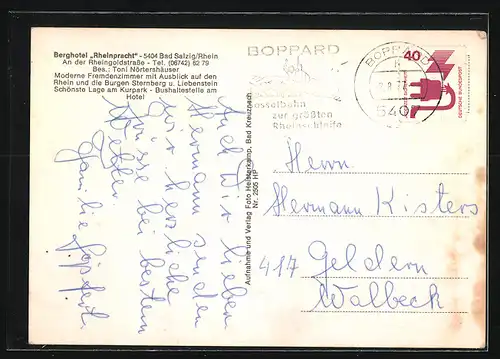 Berghotel „Rheinpracht" - 5404 Bad Salzig/Rhein
An der Rheingoldstraße - Tel. (06742) 62 79
Bes.: Toni Nörtershäuser
Moderne Fremdenzimmer mit Ausblick auf den
Rhein und die Burgen Sternberg u. Liebenstein
Schönste Lage am Kurpark - Bushaltestelle am
Hotel
Auch Wir lieben
Hermann senden
wir herzliche
Grüsse bei bestem
Wetter.
Familie
Aufnahme und Verlag Foto Heisterkamp, Bad Kreuznach
Nr. 2505 HP
BOPPARD
Sesselbahn
zur größten
Rheinschleife
BOPPARD
540
40
DEUTSCHE BUNDESPOST
Herrn
Hermann Kisters
417 Geldern
Walbeck